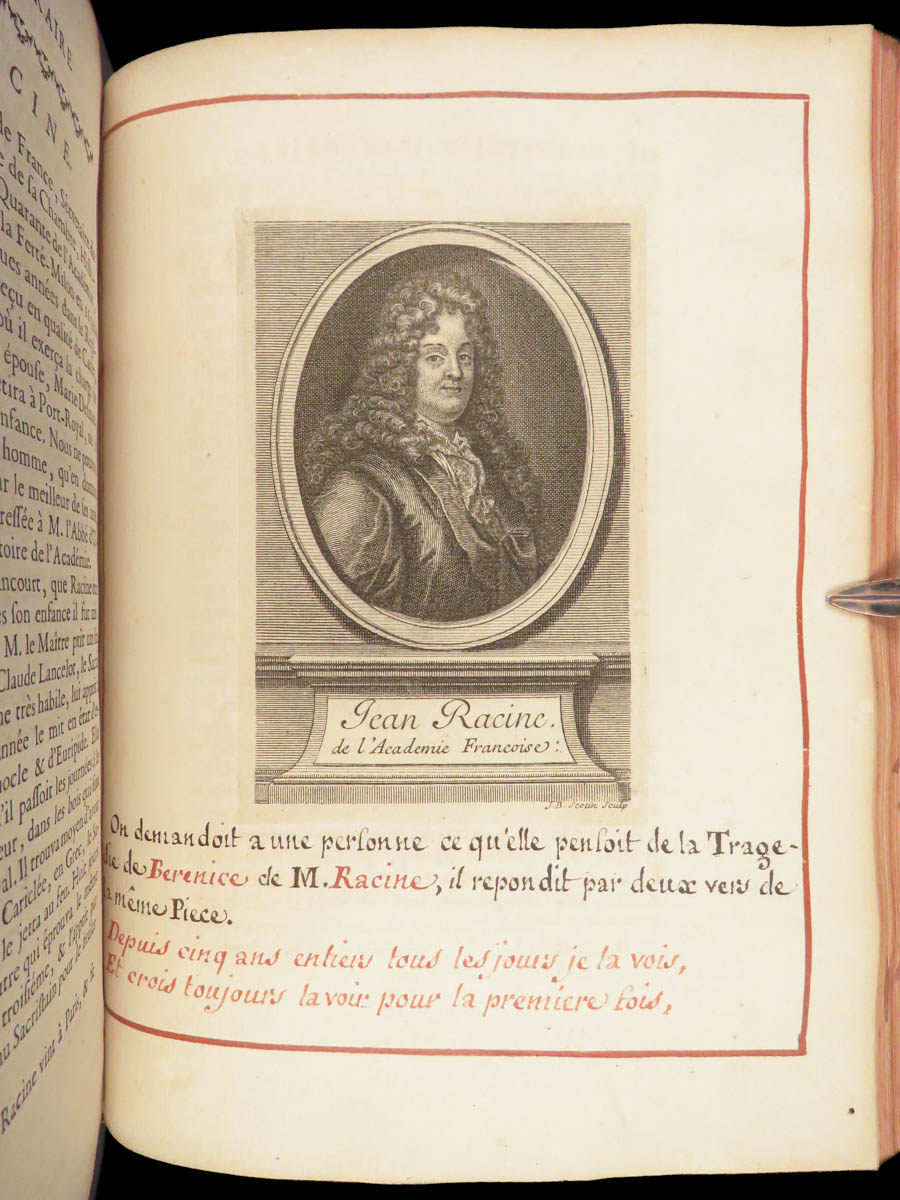 RAIRE
CINE.
de France, Sécretaire
e de sa Chambre,
Quarante de l'Académie
la Ferté-Milon en
ques années dans le
eçu en qualité de
où il exerça la charge
épouse, Marie
etira à Port-Royal,
enfance. Nous ne
homme, qu'en
ar le meilleur de
ressée à M. l'Abbé
toire de l'Académie.
ncourt, que Racine
ès son enfance il fut
M. le Maître prit
Claude Lancelot, le
ne très habile, lui
année le mit en état
hocle & d'Euripide.
'il passoit les journées
eur, dans les bois qui
al. Il trouva moyen d'avoir
Cariclée, en Grec, le
le jetta au feu. Huit jours
utre qui éprouva le même
troisiéme, & l'
au Sacristain pour le
Racine vint à Paris, &
Jean Racine.
de l'Academie Francoise:
J.B. Scotin Sculp
On demandoit a une personne ce qu'elle pensoit de la Trage-
die de Berenice de M. Racine, il repondit par deux vers de
la même Piece.
Depuis cinq ans entiers tous les jours je la vois,
Et crois toujours la voir pour la premiere fois,